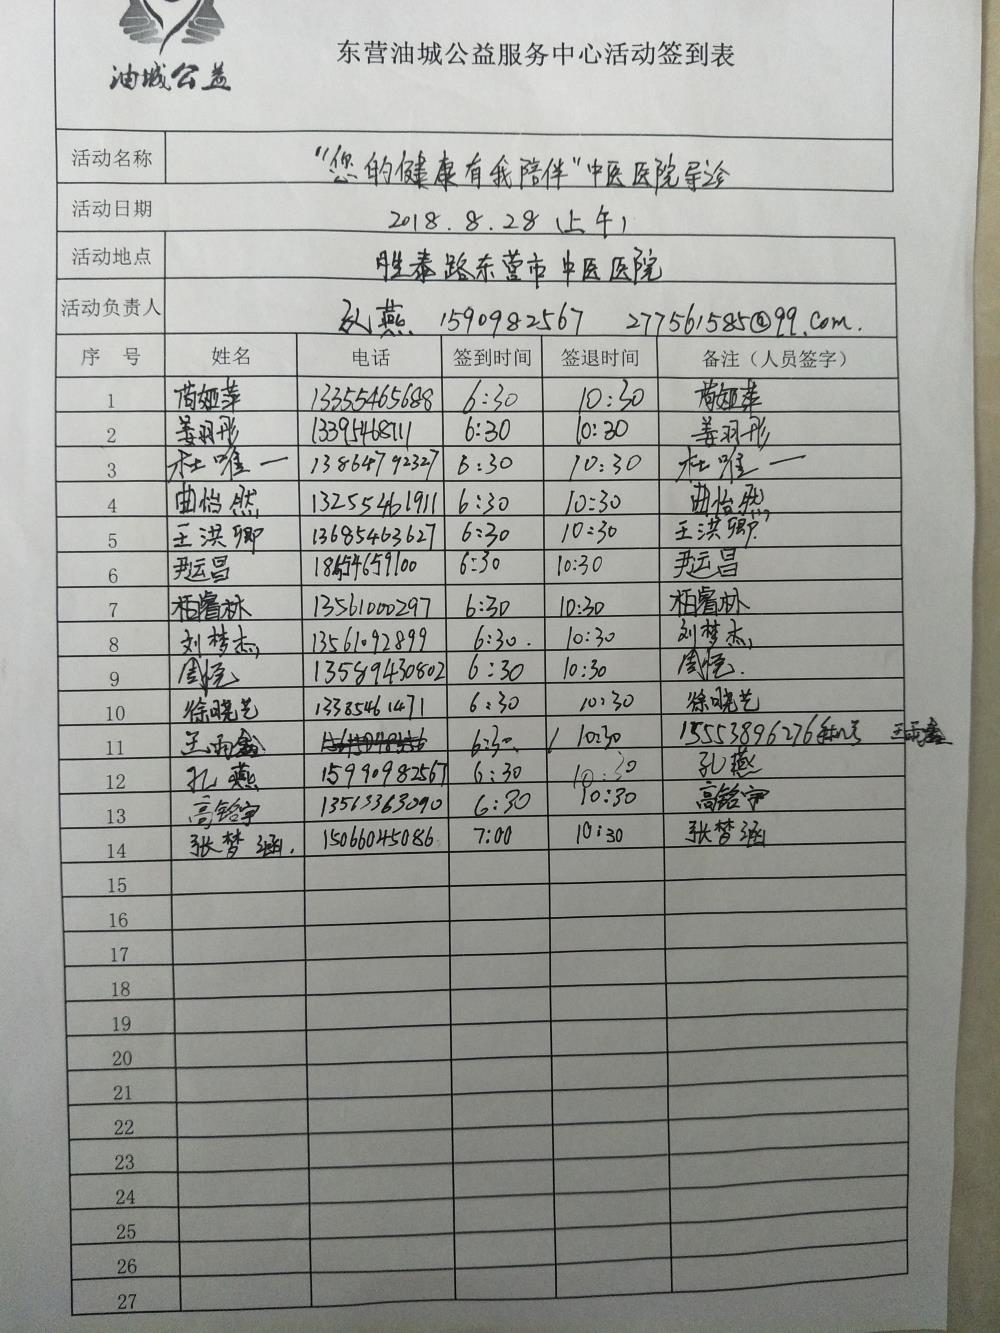 油城公益
东营油城公益服务中心活动签到表
活动名称 "您的健康有我陪伴"中医医院导诊
活动日期 2018.8.28(上午)
活动地点 胜泰路东营市中医医院
活动负责人 孔燕 1590982567 277561585@99.com.
序 号 姓名 电话 签到时间 签退时间 备注（人员签字）
1 13355465688 6:30 10:30
2 姜羽彤 13395468111 6:30 10:30 姜羽彤
3 杜唯一 13864792327 6:30 10:30 杜唯一
4 曲怡然 13255461911 6:30 10:30 曲怡然
5 王洪卿 13685463627 6:30 10:30 王洪卿
6 尹运昌 18654659100 6:30 10:30 尹运昌
7 柏睿林 13561000297 6:30 10:30 柏睿林
8 刘梦杰 13561092899 6:30. 10:30 刘梦杰
9 13589430802 6:30 10:30
10 徐晓艺 13385461471 6:30 10:30 徐晓艺
11 王雨鑫 6:30 10:30 15553896276 王雨鑫
12 孔燕 15990982567 6:30 10:30 孔燕
13 高铭宇 13563363090 6:30 10:30 高铭宇
14 张梦涵. 15066045086 7:00 10:30 张梦涵
15
16
17
18
19
20
21
22
23
24
25
26
27